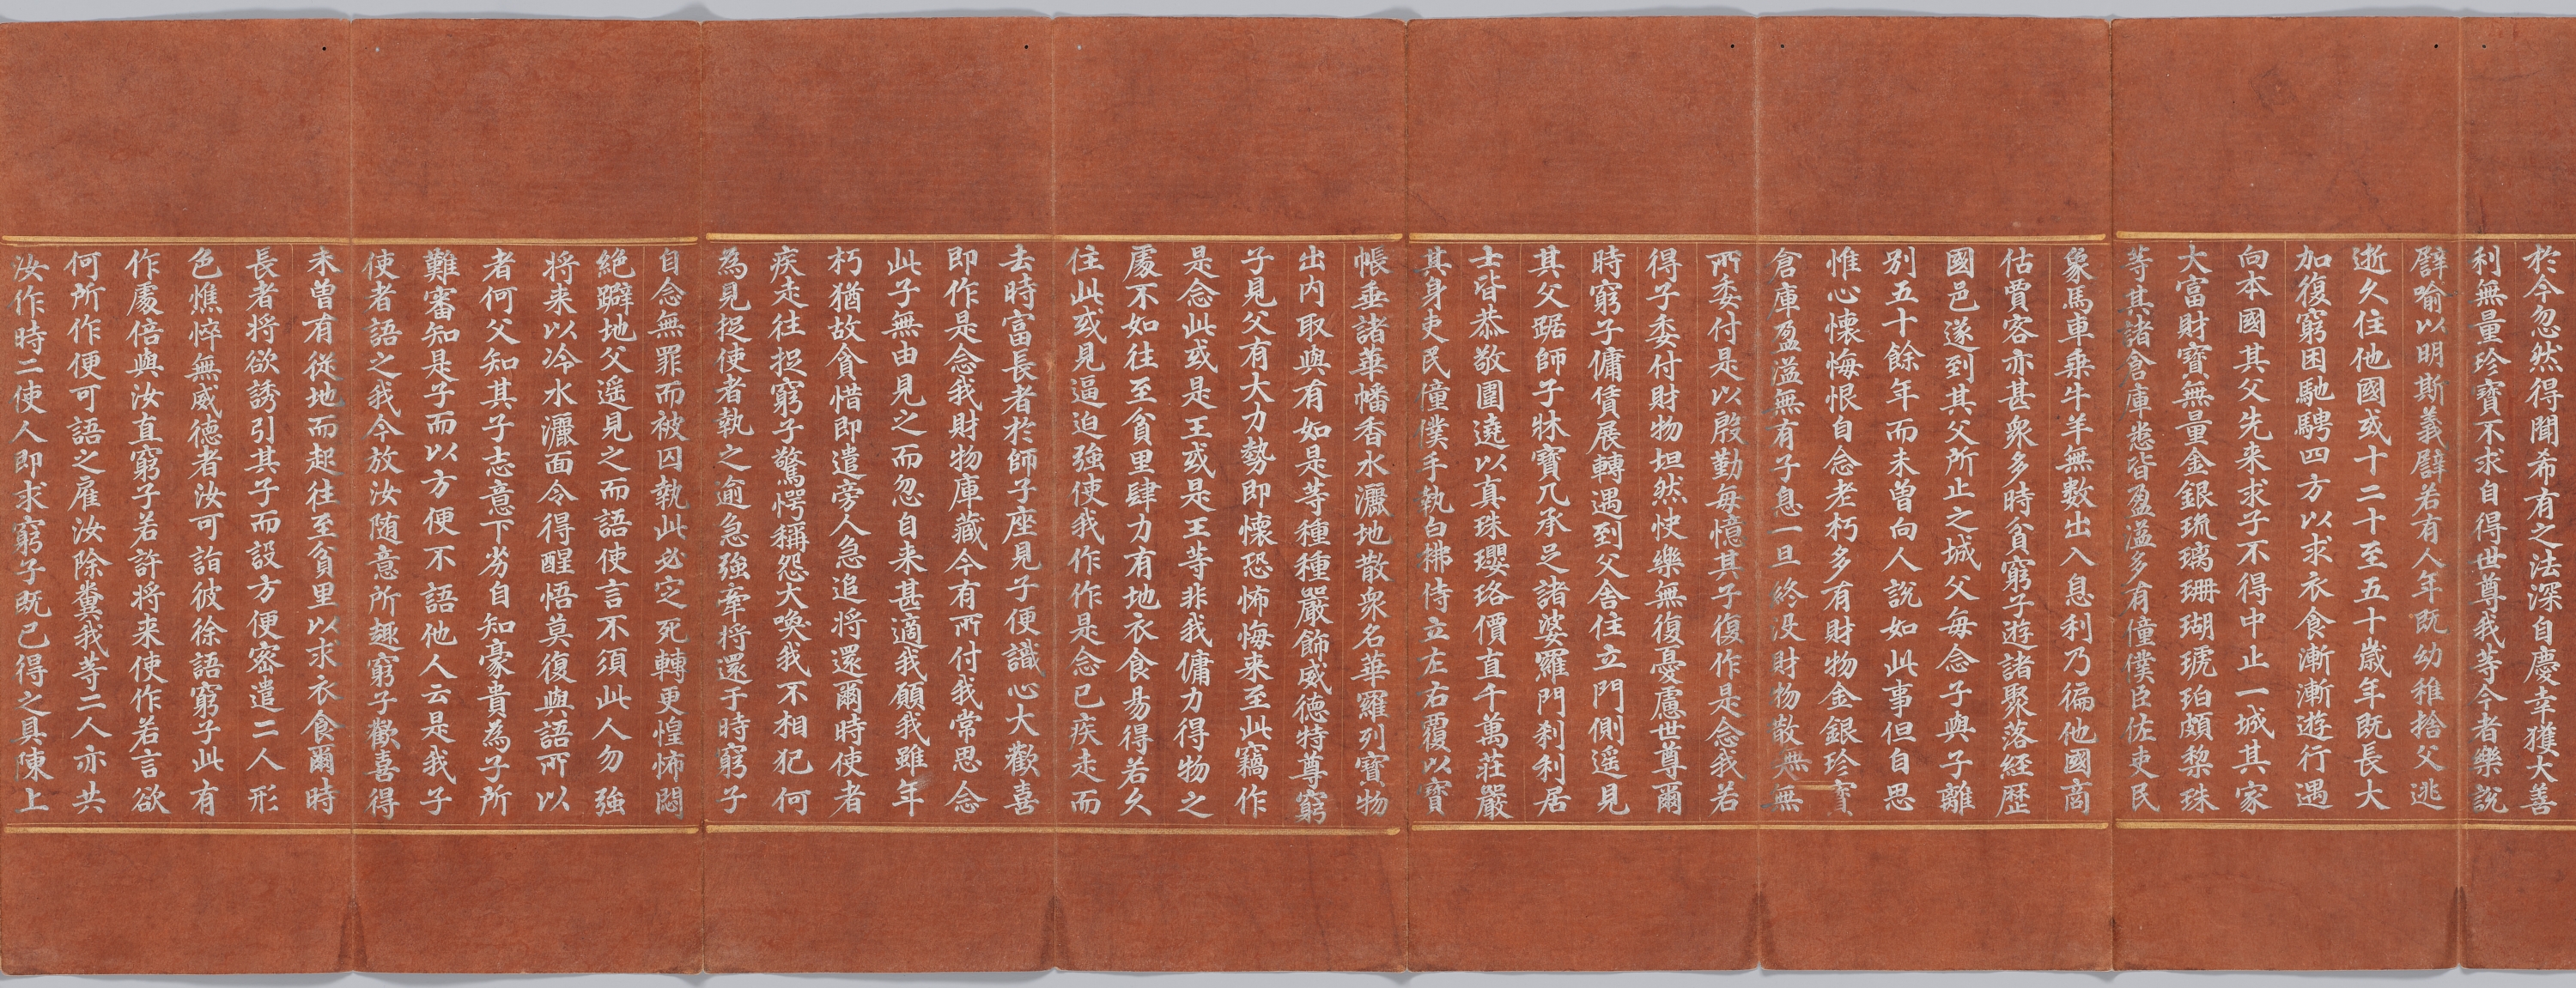 於今忽然得聞希有之法深自慶幸獲大善
利無量珍寶不求自得世尊我等今者樂說
譬喻以明斯義譬若有人年既幼稚捨父逃
逝久住他國或十二十至五十歲年既長大
加復窮困馳騁四方以求衣食漸漸遊行遇
向本國其父先来求子不得中止一城其家
大富財寶無量金銀琉璃珊瑚琥珀頗梨珠
等其諸倉庫悉皆盈溢多有僮僕臣佐吏民
象馬車乘牛羊無數出入息利乃徧他國商
估賈客亦甚衆多時貧窮子遊諸聚落經歷
國邑遂到其父所止之城父每念子與子離
別五十餘年而未曾向人說如此事但自思
惟心懷悔恨自念老朽多有財物金銀珍寶
倉庫盈溢無有子息一旦終没財物散無無
所委付是以殷勤每憶其子復作是念我若
得子委付財物坦然快樂無復憂慮世尊爾
時窮子傭賃展轉遇到父舍住立門側遥見
其父踞師子牀寶几承足諸婆羅門刹利居
士皆恭敬圍遶以真珠瓔珞價直千萬莊嚴
其身吏民僮僕手執白拂侍立左右覆以寶
帳垂諸華幡香水灑地散衆名華羅列寶物
出內取與有如是等種種嚴飾威德特尊窮
子見父有大力勢即懷恐怖悔来至此竊作
是念此或是王或是王等非我傭力得物之
處不如往至貧里肆力有地衣食易得若久
住此或見逼迫強使我作作是念已疾走而
去時富長者於師子座見子便識心大歡喜
即作是念我財物庫藏今有所付我常思念
此子無由見之而忽自来甚適我願我雖年
朽猶故貪惜即遣旁人急追將還爾時使者
疾走往捉窮子驚愕稱怨大喚我不相犯何
為見捉使者執之逾急強牽將還于時窮子
自念無罪而被囚執此必定死轉更惶怖悶
絕躃地父遥見之而語使言不須此人勿強
將来以冷水灑面令得醒悟莫復與語所以
者何父知其子志意下劣自知豪貴為子所
難審知是子而以方便不語他人云是我子
使者語之我今放汝隨意所趣窮子歡喜得
未曾有從地而起往至貧里以求衣食爾時
長者將欲誘引其子而設方便密遣二人形
色憔悴無威德者汝可詣彼徐語窮子此有
作處倍與汝直窮子若許將来使作若言欲
何所作便可語之雇汝除糞我等二人亦共
汝作時二使人即求窮子既已得之具陳上